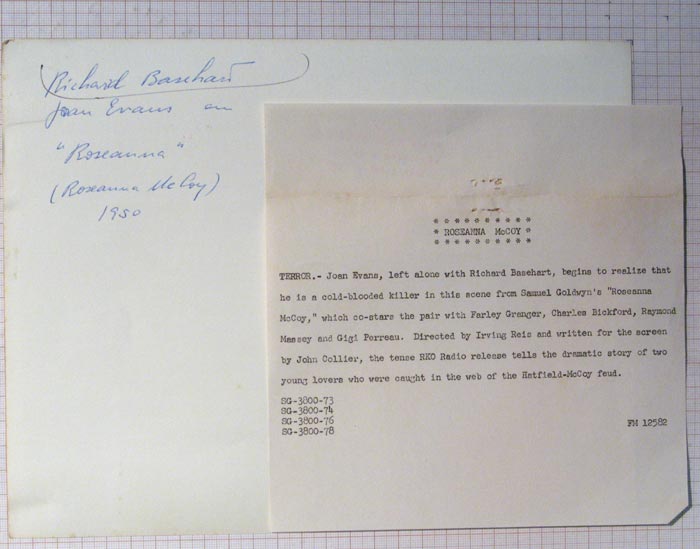 Richard Basehart
Joan Evans en
"Roseanna"
(Roseanna McCoy)
1950
* * * * * * * * * *
* ROSEANNA McCOY *
* * * * * * * * * *
TERROR.- Joan Evans, left alone with Richard Basehart, begins to realize that
he is a cold-blooded killer in this scene from Samuel Goldwyn's "Roseanna
McCoy," which co-stars the pair with Farley Granger, Charles Bickford, Raymond
Massey and Gigi Perreau. Directed by Irving Reis and written for the screen
by John Collier, the tense RKO Radio release tells the dramatic story of two
young lovers who were caught in the web of the Hatfield-McCoy feud.
SG-3800-73
SG-3800-74
SG-3800-76
SG-3800-78
FM 12582